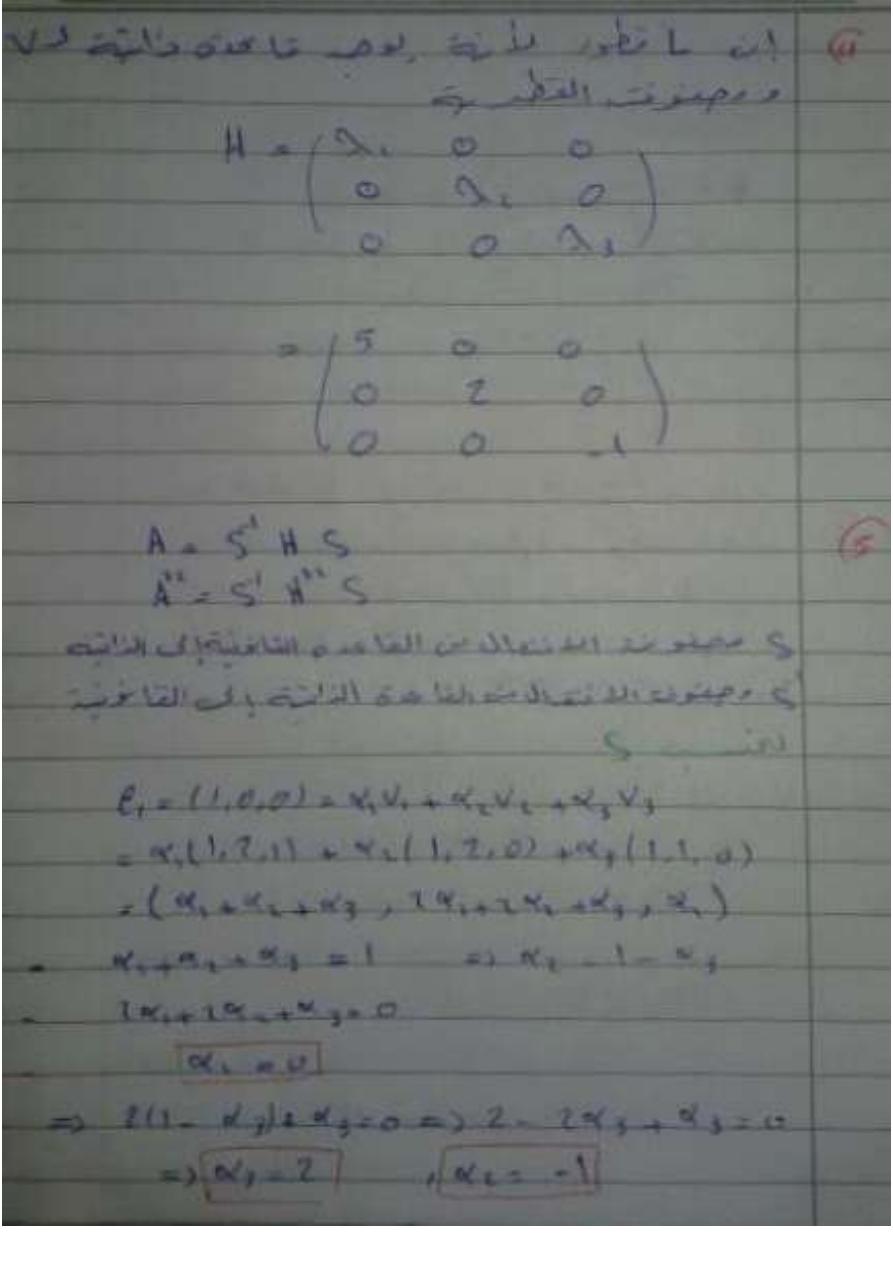 ④ إن f قطور لأنه يوجد قاعدة ذاتية لـ V
ومصفوفته القطرية
H = ( λ₁ 0 0
0 λ₂ 0
0 0 λ₃ )
= ( 5 0 0
0 2 0
0 0 -1 )
⑤ A = S⁻¹ H S
S⁻¹ H S
S مصفوفة الانتقال من القاعدة القانونية إلى الذاتية
S⁻¹ مصفوفة الانتقال من القاعدة الذاتية إلى القانونية
لنحسب S
e₁ = (1,0,0) = α₁V₁ + α₂V₂ + α₃V₃
= α₁(1,2,1) + α₂(1,2,0) + α₃(1,1,0)
= (α₁ + α₂ + α₃ , 2α₁ + 2α₂ + α₃ , α₁)
- α₁ + α₂ + α₃ = 1 => α₂ = 1 - α₃
- 2α₁ + 2α₂ + α₃ = 0
- α₁ = 0
=> 2(1 - α₃) + α₃ = 0 => 2 - 2α₃ + α₃ = 0
=> α₃ = 2 , α₂ = -1